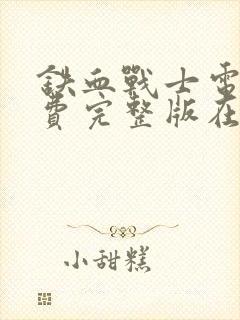 铁血戰士電
費完整版在
小甜糕